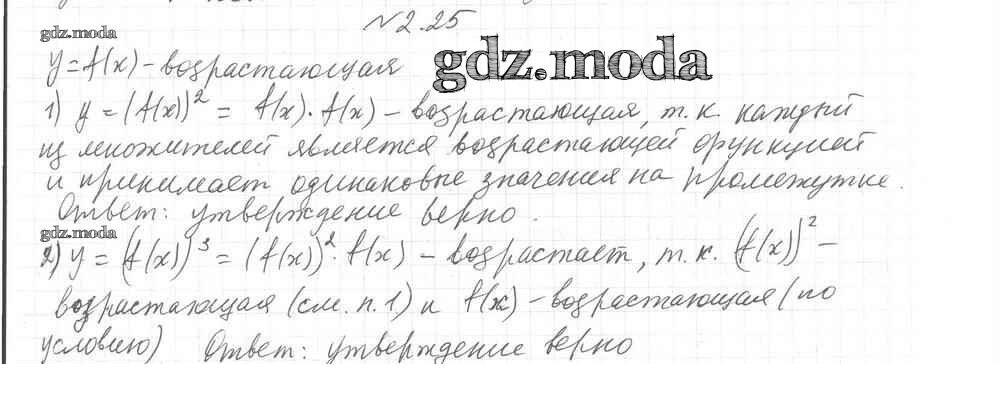 №2.25
gdz.moda
gdz.moda
y = f(x) - возрастающая
1) y = (f(x))² = f(x) · f(x) - возрастающая, т.к. каждый
из множителей является возрастающей функцией
и принимает одинаковые значения на промежутке.
Ответ: утверждение верно.
gdz.moda
2) y = (f(x))³ = (f(x))² · f(x) - возрастает, т.к. (f(x))² -
возрастающая (см. п. 1) и f(x) - возрастающая (по
условию) Ответ: утверждение верно